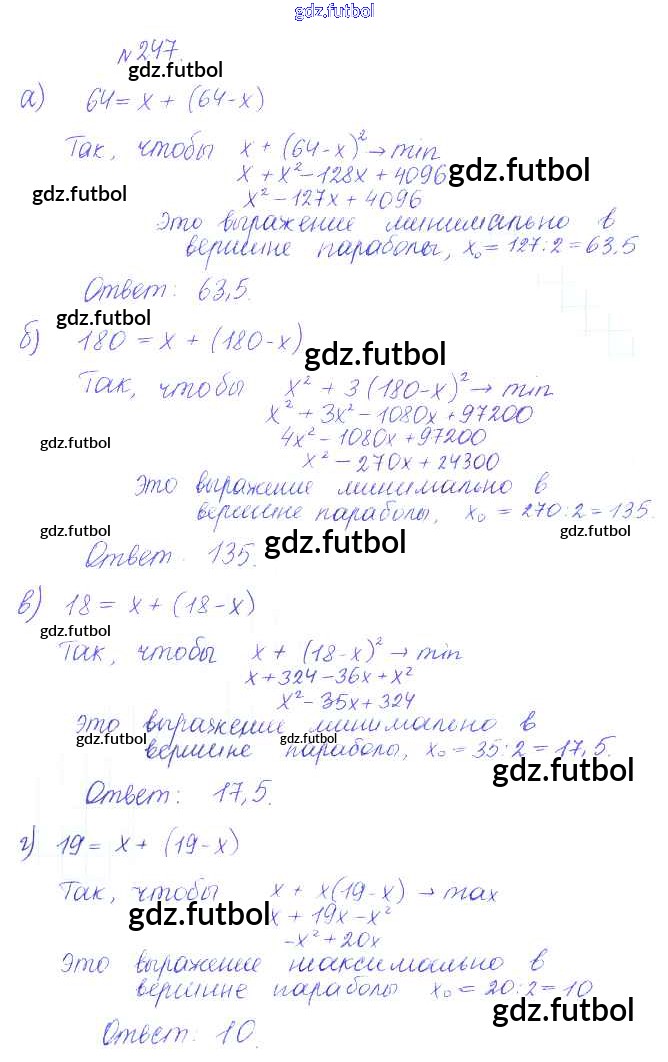 gdz.futbol
№247.
gdz.futbol
а) 64 = x + (64-x)
Так, чтобы x + (64-x)² → min
x + x² - 128x + 4096 gdz.futbol
gdz.futbol x² - 127x + 4096
Это выражение минимально в
вершине параболы, x₀ = 127:2 = 63,5
Ответ: 63,5.
gdz.futbol
б) 180 = x + (180-x)
gdz.futbol
Так, чтобы x² + 3(180-x)² → min
x² + 3x² - 1080x + 97200
gdz.futbol 4x² - 1080x + 97200
x² - 270x + 24300
Это выражение минимально в
вершине параболы, x₀ = 270:2 = 135.
gdz.futbol gdz.futbol
Ответ: 135. gdz.futbol
в) 18 = x + (18-x)
gdz.futbol
Так, чтобы x + (18-x)² → min
x + 324 - 36x + x²
x² - 35x + 324
Это выражение минимально в
gdz.futbol gdz.futbol
вершине параболы, x₀ = 35:2 = 17,5.
gdz.futbol
Ответ: 17,5.
г) 19 = x + (19-x)
Так, чтобы x + x(19-x) → max
gdz.futbol x + 19x - x²
-x² + 20x
Это выражение максимально в
вершине параболы x₀ = 20:2 = 10
gdz.futbol
Ответ: 10.